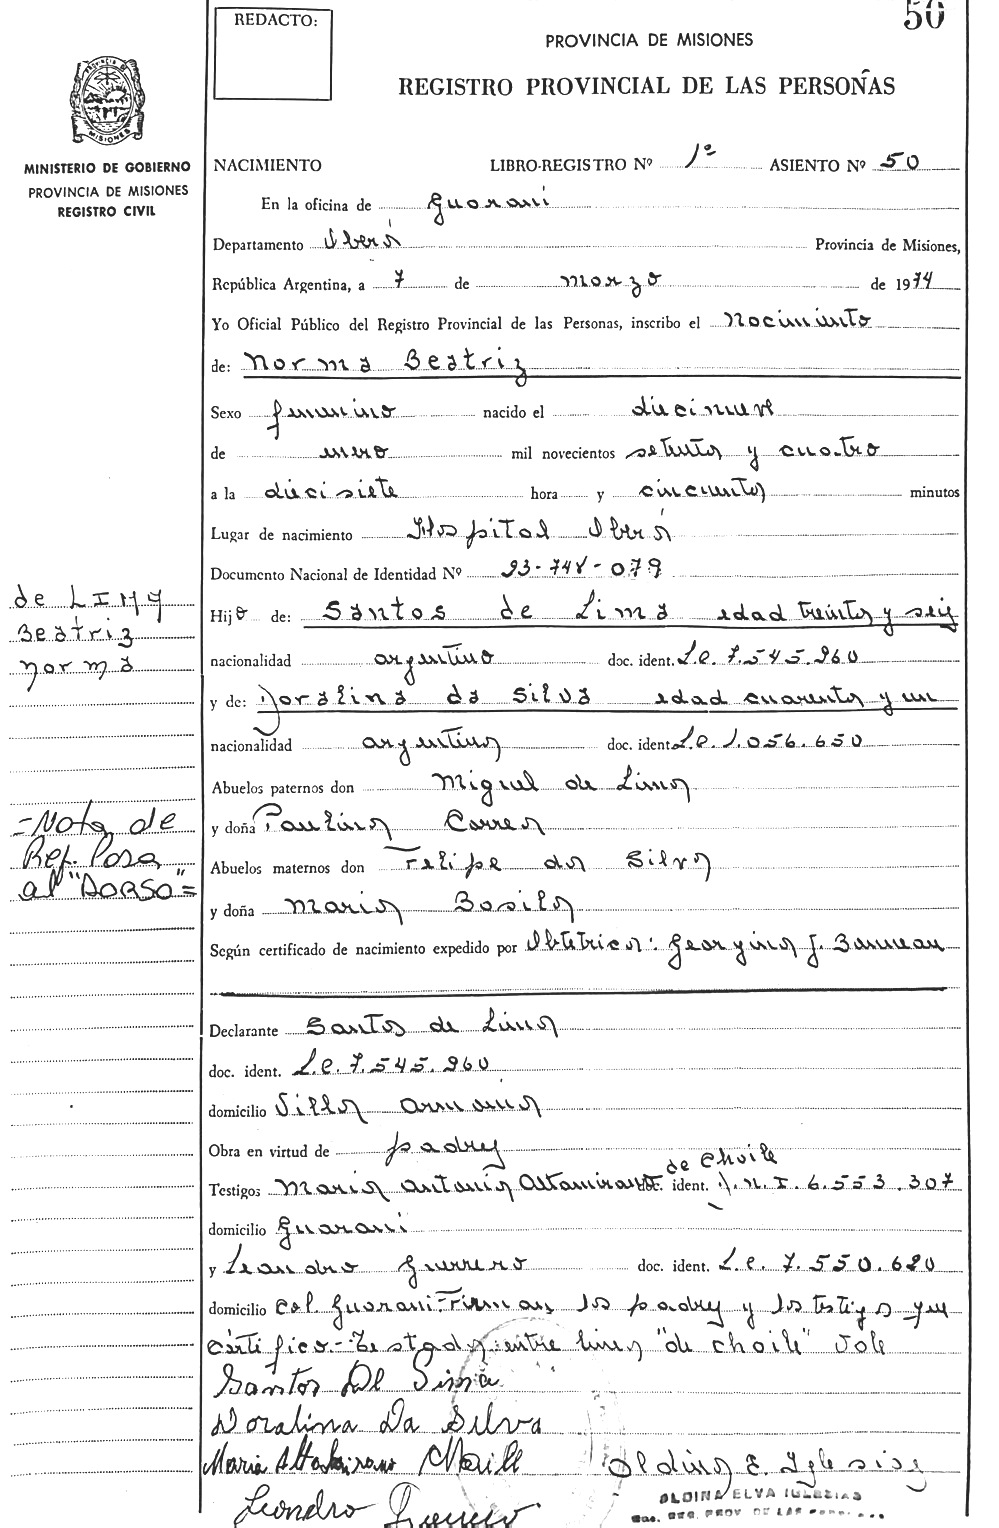 REDACTO:
50
PROVINCIA DE MISIONES
REGISTRO PROVINCIAL DE LAS PERSOÑAS
PROVINCIA DE
MISIONES
MINISTERIO DE GOBIERNO
PROVINCIA DE MISIONES
REGISTRO CIVIL
NACIMIENTO LIBRO-REGISTRO Nº 1º ASIENTO Nº 50
En la oficina de Guaraní
Departamento Oberá Provincia de Misiones,
República Argentina, a 7 de marzo de 1974
Yo Oficial Público del Registro Provincial de las Personas, inscribo el nacimiento
de: Norma Beatriz
Sexo femenino nacido el diecinueve
de enero mil novecientos setenta y cuatro
a la diecisiete hora y cincuenta minutos
Lugar de nacimiento Hospital Oberá
Documento Nacional de Identidad Nº 23-748-079
de LIMA
Beatriz
Norma
Hija de: Santos de Lima edad treinta y seis
nacionalidad argentino doc. ident. L.E. 7.545.960
y de: Doralina da Silva edad cuarenta y un
nacionalidad argentina doc. ident. L.C. 1.056.650
Abuelos paternos don Miguel de Lima
y doña Paulina Correa
Abuelos maternos don Felipe da Silva
y doña Maria
-Nota de
Ref. Pasa
al "DORSO"=
Según certificado de nacimiento expedido por Obtetrica: Georgina J.
Declarante Santos de Lima
doc. ident. L.E. 7.545.960
domicilio Villa Armonia
Obra en virtud de padre
de Choile
Testigos Maria Antonia Altamirano doc. ident. D.N.I. 6.553.307
domicilio Guaraní
y Leandro Guerrero doc. ident. L.E. 7.550.620
domicilio Col. Guaraní-Firman los padres y los testigos que
certifico.-Testado: entre linea "de choile" Vale
Santos De Lima
Doralina Da Silva
Maria Altamirano
Leandro Guerrero
Aldina E. Iglesias
ALDINA ELVA IGLESIAS
REG. PROV. DE LAS